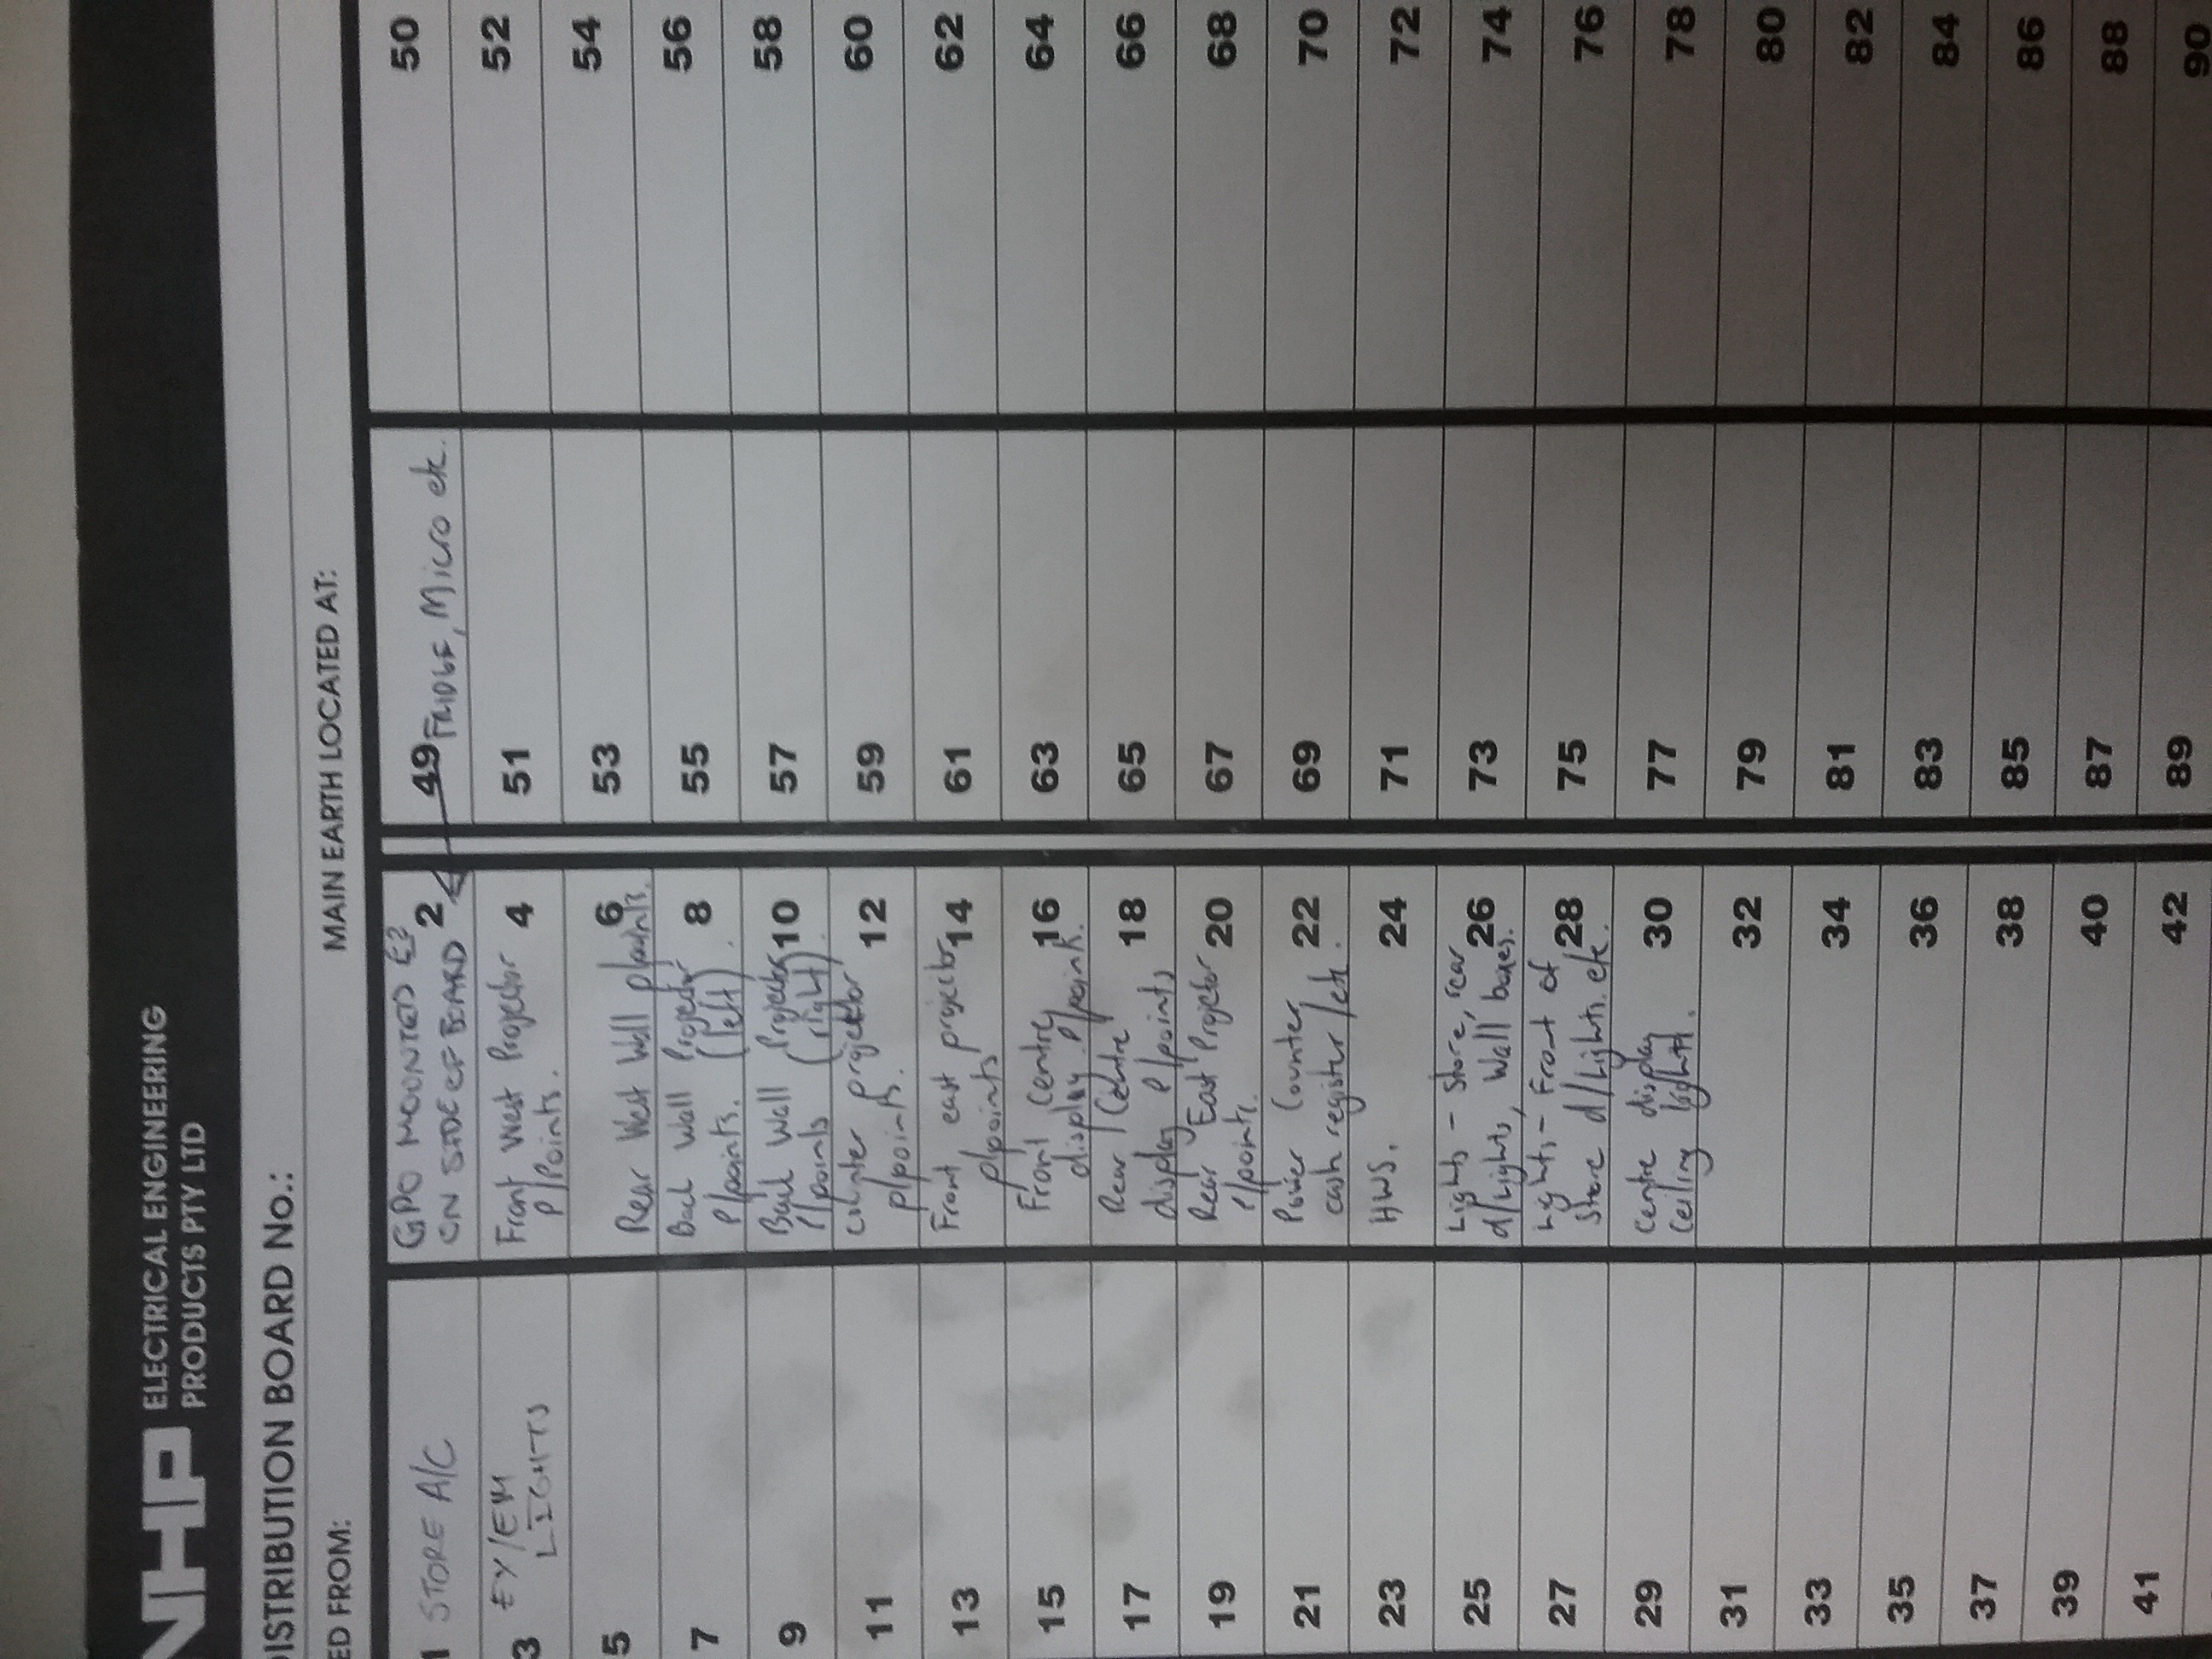 NHP ELECTRICAL ENGINEERING
PRODUCTS PTY LTD
DISTRIBUTION BOARD No.:
ED FROM:
MAIN EARTH LOCATED AT:
1 STORE A/C
GPO MOUNTED
ON SIDE OF BOARD 2
49 FRIDGE, Micro etc.
50
3 EX/EM
LIGHTS
Front West Projector 4
P/Points.
51
52
5
Rear West Wall p/points. 6
53
54
7
Back Wall Projector 8
P/points. (left).
55
56
9
Back Wall Projector 10
P/points (right).
57
58
11
counter projector 12
p/points.
59
60
13
Front east projector 14
p/points
61
62
15
Front Centre 16
display P/point.
63
64
17
Rear Centre 18
display P/points
65
66
19
Rear East Projector 20
P/points.
67
68
21
Power Counter 22
cash register/etc.
69
70
23
HWS. 24
71
72
25
Lights - Store, rear 26
d/lights, Wall boxes.
73
74
27
Lights - Front of 28
Store d/lights. etc.
75
76
29
Centre display 30
Ceiling lights.
77
78
31
32
79
80
33
34
81
82
35
36
83
84
37
38
85
86
39
40
87
88
41
42
89
90